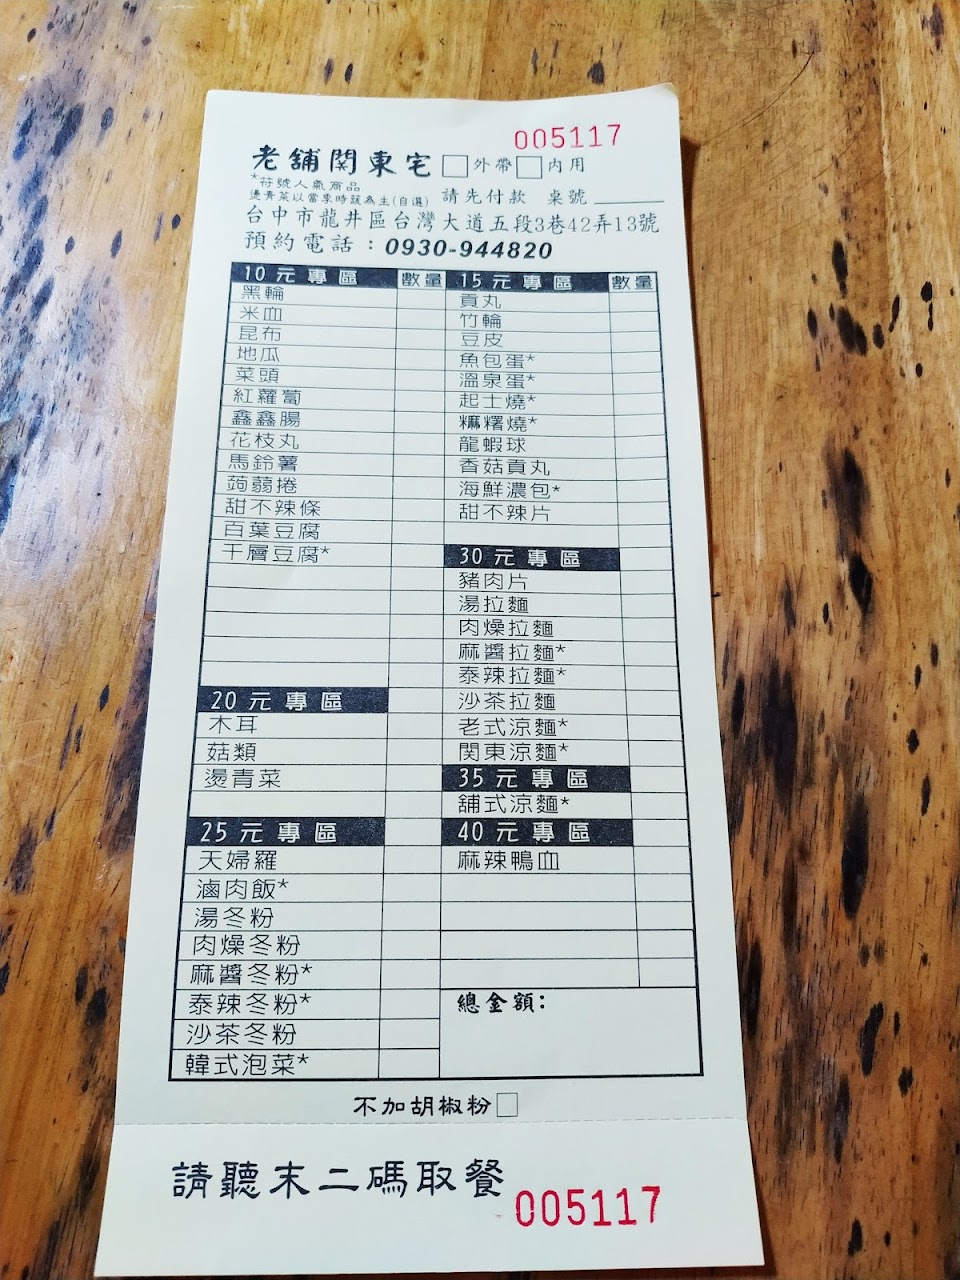 005117
老舖関東宅 □外帶 □內用
*符號人氣商品
燙青菜以當季時蔬為主(自選) 請先付款 桌號
台中市龍井區台灣大道五段3巷42弄13號
預約電話：0930-944820
10元專區 數量
黑輪
米血
昆布
地瓜
菜頭
紅蘿蔔
鑫鑫腸
花枝丸
馬鈴薯
蒟蒻捲
甜不辣條
百葉豆腐
千層豆腐*
20元專區
木耳
菇類
燙青菜
25元專區
天婦羅
滷肉飯*
湯冬粉
肉燥冬粉
麻醬冬粉*
泰辣冬粉*
沙茶冬粉
韓式泡菜*
15元專區 數量
貢丸
竹輪
豆皮
魚包蛋*
溫泉蛋*
起士燒*
麻糬燒*
龍蝦球
香菇貢丸
海鮮濃包*
甜不辣片
30元專區
豬肉片
湯拉麵
肉燥拉麵
麻醬拉麵*
泰辣拉麵*
沙茶拉麵
老式涼麵*
関東涼麵*
35元專區
舖式涼麵*
40元專區
麻辣鴨血
總金額:
不加胡椒粉□
請聽末二碼取餐 005117